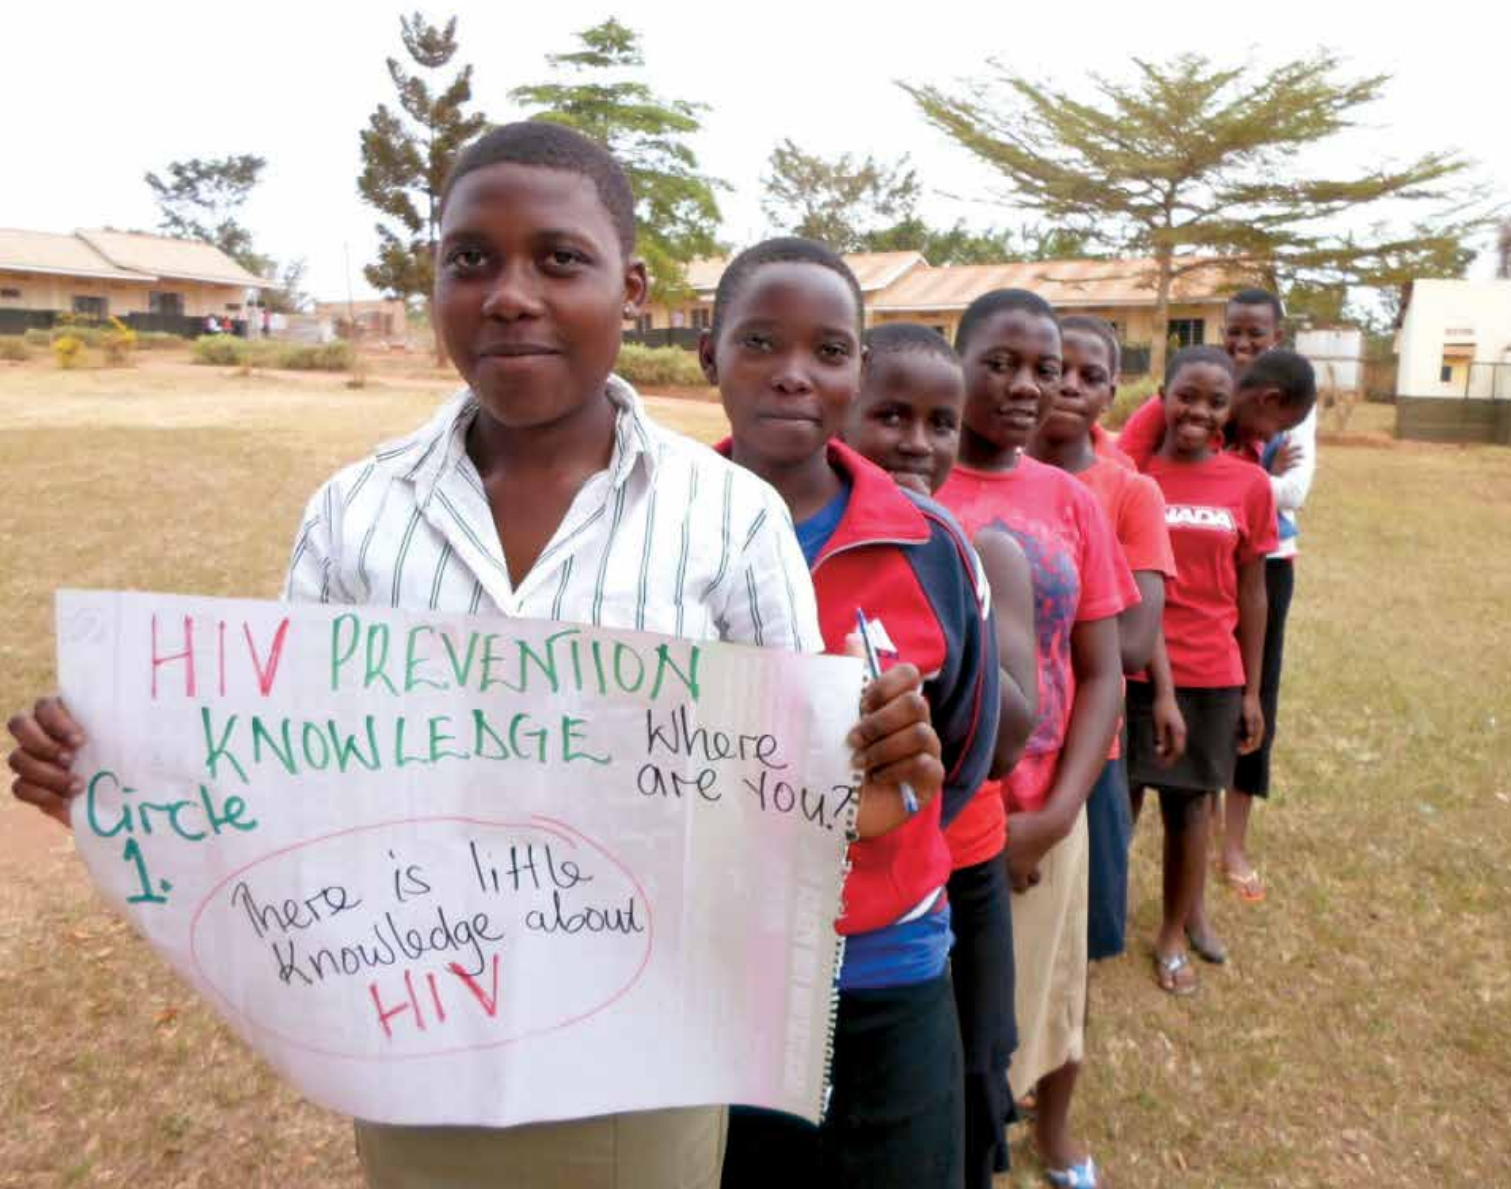 HIV PREVENTION
KNOWLEDGE
Where
are You?
Circle
1.
There is little
Knowledge about
HIV
NADA